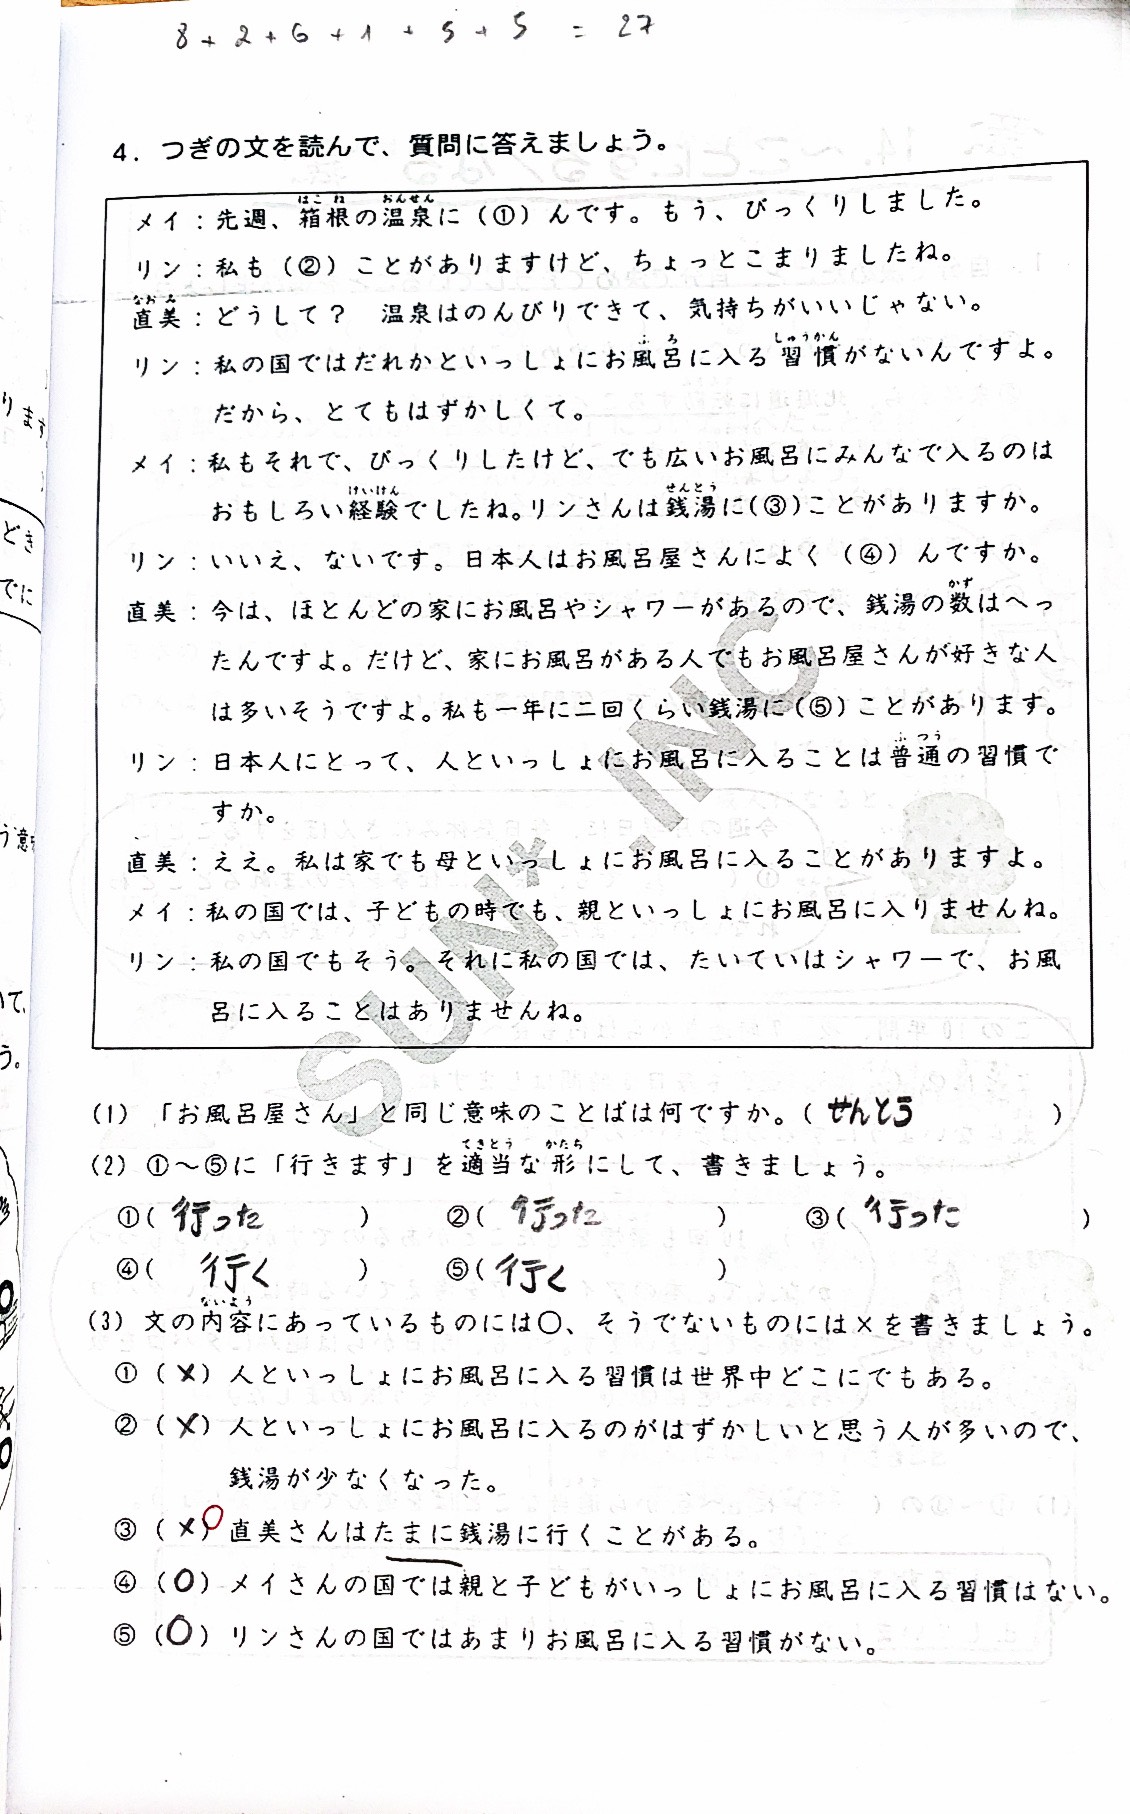 8 + 2 + 6 + 1 + 5 + 5 = 27
4．つぎの文を読んで、質問に答えましょう。
メイ：先週、箱根の温泉に（①）んです。もう、びっくりしました。
リン：私も（②）ことがありますけど、ちょっとこまりましたね。
直美：どうして？　温泉はのんびりできて、気持ちがいいじゃない。
リン：私の国ではだれかといっしょにお風呂に入る習慣がないんですよ。
だから、とてもはずかしくて。
メイ：私もそれで、びっくりしたけど、でも広いお風呂にみんなで入るのは
おもしろい経験でしたね。リンさんは銭湯に（③）ことがありますか。
リン：いいえ、ないです。日本人はお風呂屋さんによく（④）んですか。
直美：今は、ほとんどの家にお風呂やシャワーがあるので、銭湯の数はへっ
たんですよ。だけど、家にお風呂がある人でもお風呂屋さんが好きな人
は多いそうですよ。私も一年に二回くらい銭湯に（⑤）ことがあります。
リン：日本人にとって、人といっしょにお風呂に入ることは普通の習慣で
すか。
直美：ええ。私は家でも母といっしょにお風呂に入ることがありますよ。
メイ：私の国では、子どもの時でも、親といっしょにお風呂に入りませんね。
リン：私の国でもそう。それに私の国では、たいていはシャワーで、お風
呂に入ることはありませんね。
SUN* .INC
(1) 「お風呂屋さん」と同じ意味のことばは何ですか。( せんとう )
(2) ①～⑤に「行きます」を適当な形にして、書きましょう。
①( 行った ) ②( 行った ) ③( 行った )
④( 行く ) ⑤( 行く )
(3) 文の内容にあっているものには○、そうでないものには×を書きましょう。
① (×) 人といっしょにお風呂に入る習慣は世界中どこにでもある。
② (×) 人といっしょにお風呂に入るのがはずかしいと思う人が多いので、
銭湯が少なくなった。
③ (×)○ 直美さんはたまに銭湯に行くことがある。
④ (○) メイさんの国では親と子どもがいっしょにお風呂に入る習慣はない。
⑤ (○) リンさんの国ではあまりお風呂に入る習慣がない。